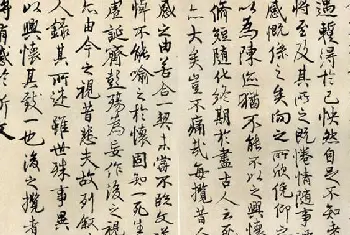 遇暫得於己快然自足不知老
將至及其所之既惓情隨事
感慨係之矣向之所欣俛仰之
以為陳迹猶不能不以之興懷
脩短隨化終期於盡古人云死
亦大矣豈不痛哉每攬昔人
感之由若合一契未嘗不臨文嗟
悼不能喻之於懷固知一死生
虛誕齊彭殤為妄作後之視
亦由今之視昔悲夫故列叙
人錄其所述雖世殊事異
以興懷其致一也後之攬者
將有感於斯文